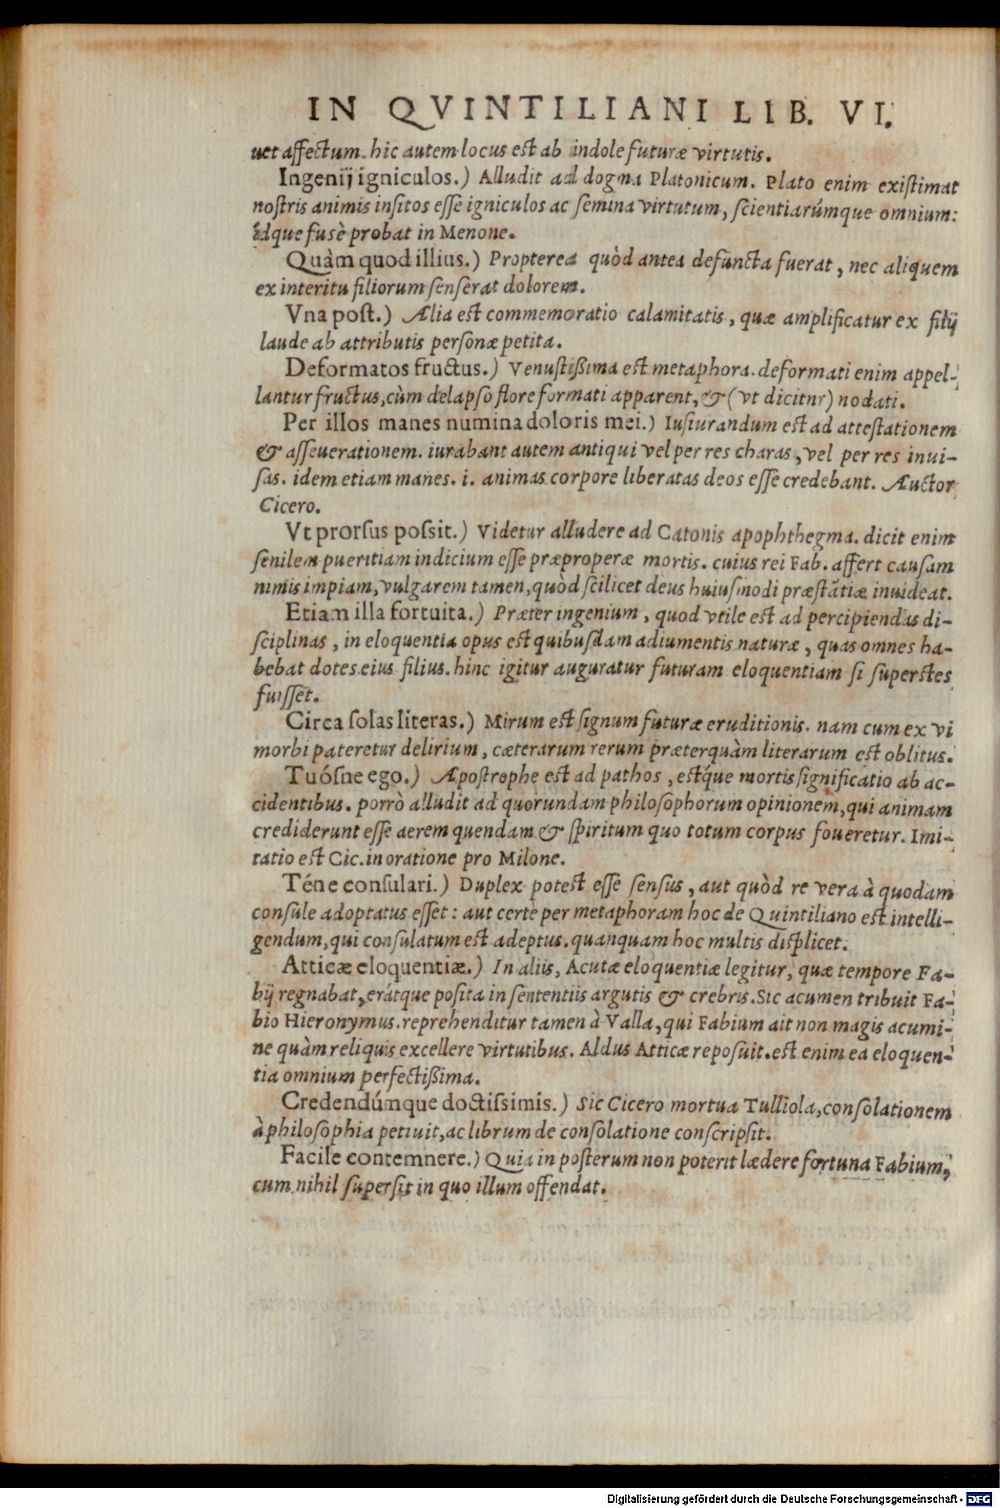 IN QVINTILIANI LIB. VI.
uet affectum. hic autem locus est ab indole futuræ virtutis.
Ingenij igniculos.) Alludit ad dogma Platonicum. Plato enim existimat
nostris animis insitos esse igniculos ac semina virtutum, scientiarúmque omnium:
idque fusè probat in Menone.
Quàm quod illius.) Propterea quòd antea defuncta fuerat, nec aliquem
ex interitu filiorum senserat dolorem.
Vna post.) Alia est commemoratio calamitatis, quæ amplificatur ex filij
laude ab attributis personæ petita.
Deformatos fructus.) Venustißima est metaphora. deformati enim appel-
lantur fructus, cùm delapso flore formati apparent, & (vt dicitnr) nodati.
Per illos manes numina doloris mei.) Iusiurandum est ad attestationem
& asseuerationem. iurabant autem antiqui vel per res charas, vel per res inui-
sas. idem etiam manes. i. animas corpore liberatas deos esse credebant. Auctor
Cicero.
Vt prorsus possit.) Videtur alludere ad Catonis apophthegma. dicit enim
senilem pueritiam indicium esse præproperæ mortis. cuius rei Fab. affert causam
nimis impiam, vulgarem tamen, quòd scilicet deus huiusmodi præstãtiæ inuideat.
Etiam illa fortuita.) Præter ingenium, quod vtile est ad percipiendas di-
sciplinas, in eloquentia opus est quibusdam adiumentis naturæ, quas omnes ha-
bebat dotes eius filius. hinc igitur auguratur futuram eloquentiam si superstes
fuisset.
Circa solas literas.) Mirum est signum futuræ eruditionis. nam cum ex vi
morbi pateretur delirium, cæterarum rerum præterquàm literarum est oblitus.
Tuósne ego.) Apostrophe est ad pathos, estq́ue mortis significatio ab ac-
cidentibus. porrò alludit ad quorundam philosophorum opinionem, qui animam
crediderunt esse aerem quendam & spiritum quo totum corpus foueretur. Imi-
tatio est Cic. in oratione pro Milone.
Téne consulari.) Duplex potest esse sensus, aut quòd re vera à quodam
consule adoptatus esset: aut certe per metaphoram hoc de Quintiliano est intelli-
gendum, qui consulatum est adeptus. quanquam hoc multis displicet.
Atticæ eloquentiæ.) In aliis, Acutæ eloquentiæ legitur, quæ tempore Fa-
bij regnabat, erátque posita in sententiis argutis & crebris. Sic acumen tribuit Fa-
bio Hieronymus. reprehenditur tamen à Valla, qui Fabium ait non magis acumi-
ne quàm reliquis excellere virtutibus. Aldus Atticæ reposuit. est enim ea eloquen-
tia omnium perfectißima.
Credendúmque doctissimis.) Sic Cicero mortua Tulliola, consolationem
à philosophia petiuit, ac librum de consolatione conscripsit.
Facile contemnere.) Quia in posterum non poterit lædere fortuna Fabium,
cum nihil supersit in quo illum offendat.
Digitalisierung gefördert durch die Deutsche Forschungsgemeinschaft - DFG